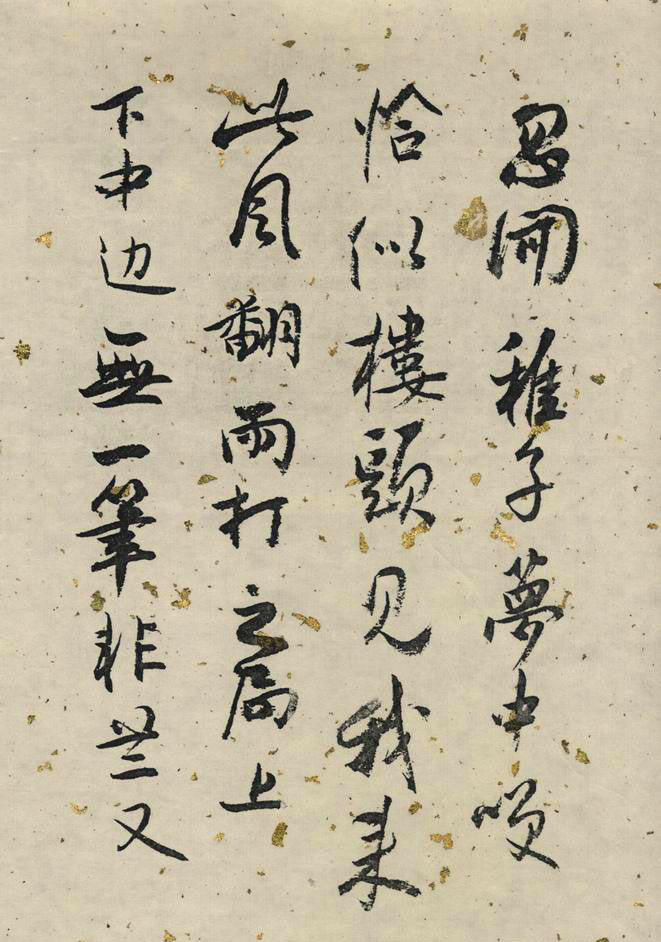 忽聞稚子夢中咲
恰似樓頭見我来
此風翻雨打之局上
下中边無一筆非又